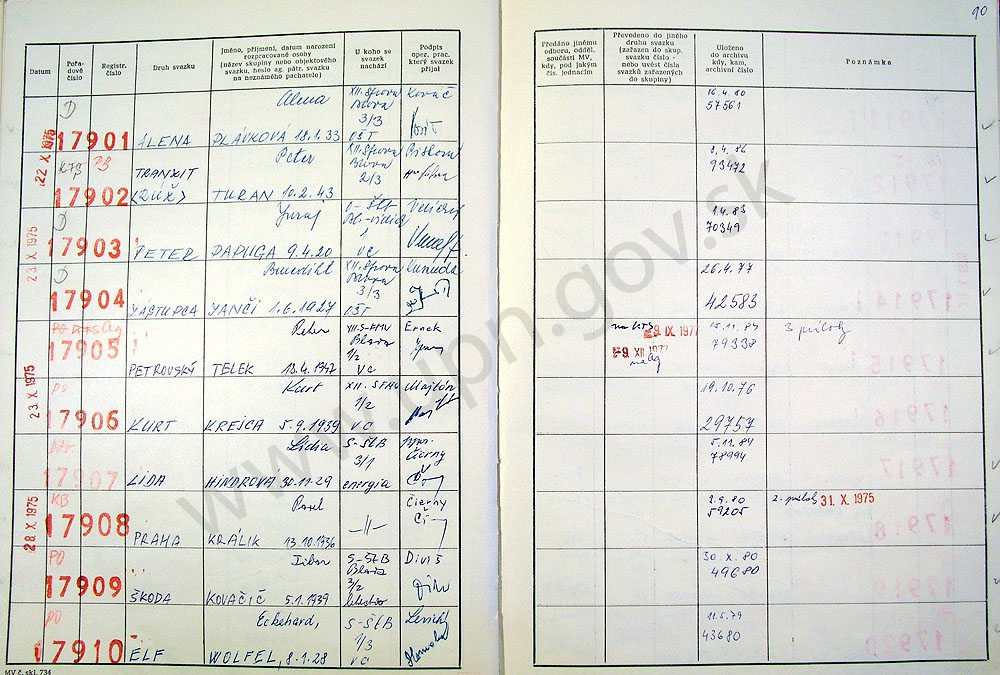 90
Datum
Pořadové číslo
Registr. číslo
Druh svazku
Jméno, příjmení, datum narození rozpracované osoby (název skupiny nebo objektového svazku, heslo ag. pátr. svazku na neznámého pachatele)
U koho se svazek nachází
Podpis oper. prac. který svazek přijal
Předáno jinému odboru, odděl. součásti MV, kdy, pod jakým čís. jednacím
Převedeno do jiného druhu svazku (zařazen do skup. svazku číslo - nebo uvést čísla svazků zařazených do skupiny)
Uloženo do archivu kdy, kam, archivní číslo
Poznámka
D Alena XII. Sprava Kováč 16.4.80
3/3 57561
17901 ALENA PLÁVKOVÁ 18.1.33 OŠT
22 X. 1975
KTS PB Peter XII. Sprava 8.4.86
TRANXIT 2/3 93472
17902 TURAN 10.2.43
D Juraj 1.4.83
1 70349
23. X. 1975 17903 PETER PAPUGA 9.4.20 VC
D Benedikt XII. Sprava 26.4.77
3/3
17904 ZÁSTUPCA JANČI 1.6.1927 OŠT 42583
PO KTS Ag Peter XII. S-FMV Ernek na KTS 28. IX. 1977 15.11.84 3 prílohy
17905 1/2 -9. XII 1977 79338
PETROVSKÝ TELEK 13.4.1942 VC na Ag
23. X. 1975
PO Kurt XII. SFMV Majtán 19.10.76
17906 1/2
KURT KREJCA 5.9.1939 VC 29757
Lidia S-ŠtB ppor. 5.11.84
17907 3/1 Čierny 78994
LIDA HINDROVÁ 30.11.29 energia
KB Pavel Čierny 2.9.80 31. X. 1975
28. X. 1975 17908 -//- Či 59205
PRAHA KRÁLIK 13.10.1936
PO Tibor S-ŠtB Diviš 30.X.80
17909 49680
ŠKODA KOVAČIČ 5.1.1939
PO Eckehard, S-ŠtB 11.5.79
17910 1/3 43680
ELF WOLFEL, 8.1.28 VC
MV č. skl. 734
www.upn.gov.sk